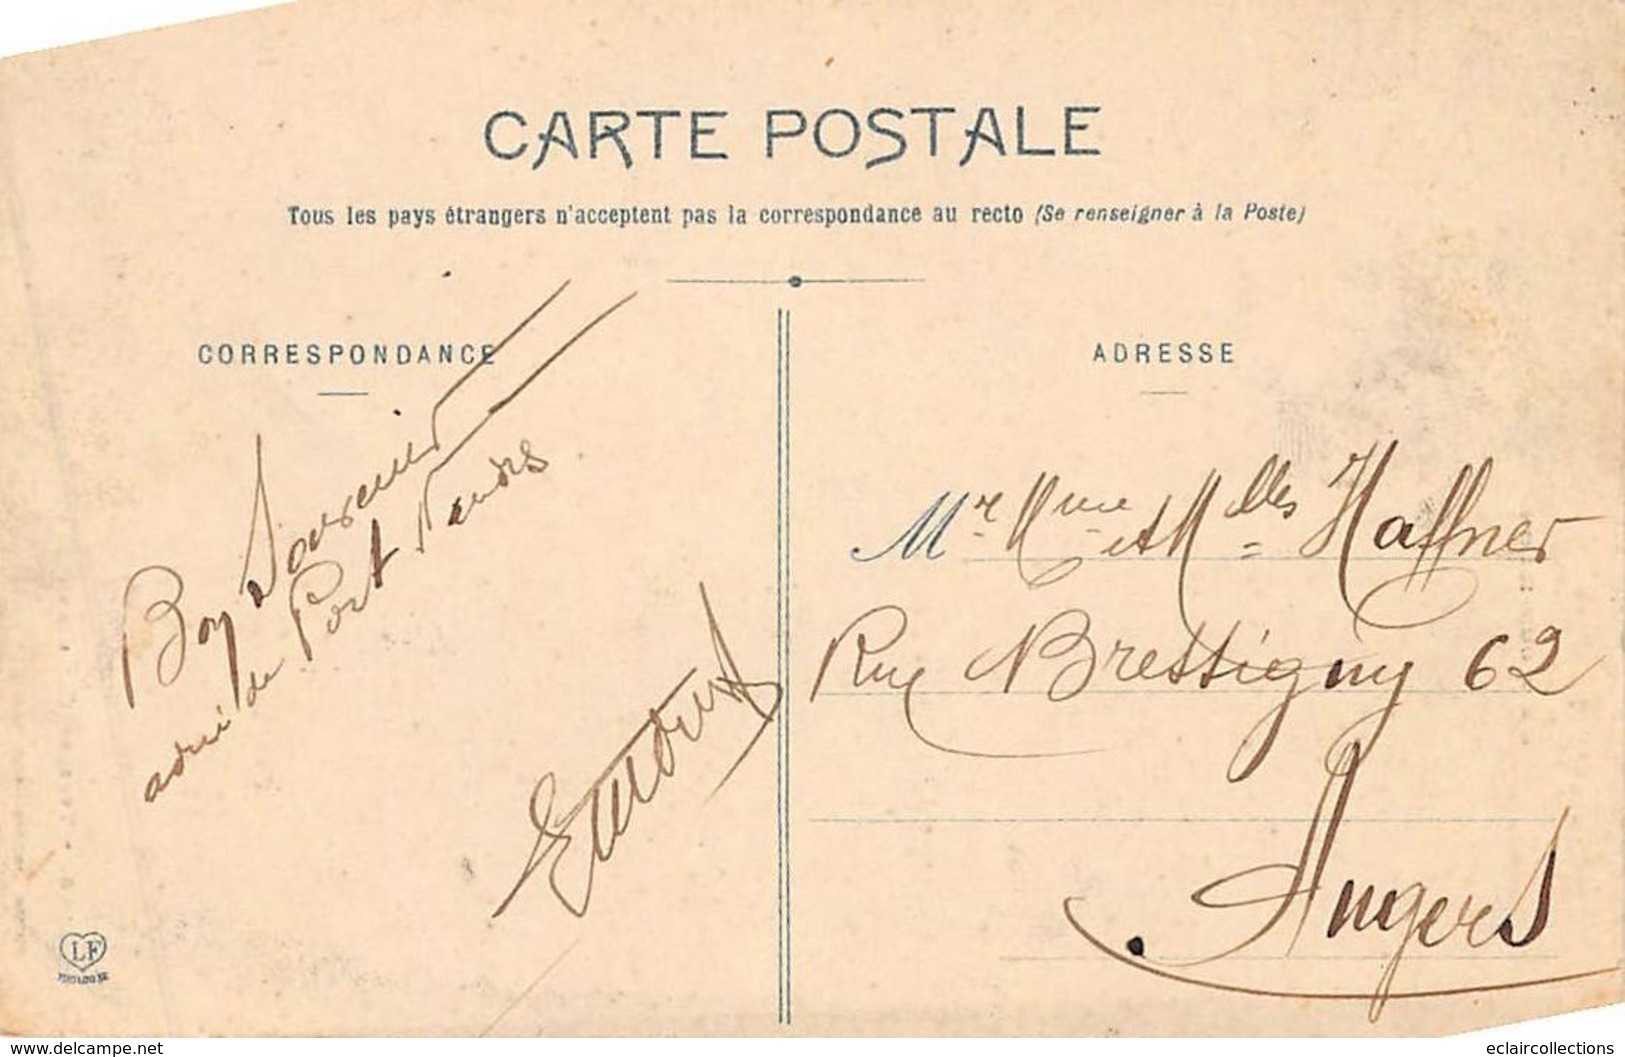 CARTE POSTALE
Tous les pays étrangers n'acceptent pas la correspondance au recto (Se renseigner à la Poste)
CORRESPONDANCE
Bon Souvenir
de Port Vendres
ADRESSE
Mr Mme et Mlles Haffner
Rue Bressigny 62
Angers
LF
www.delcampe.net
eclaircollections